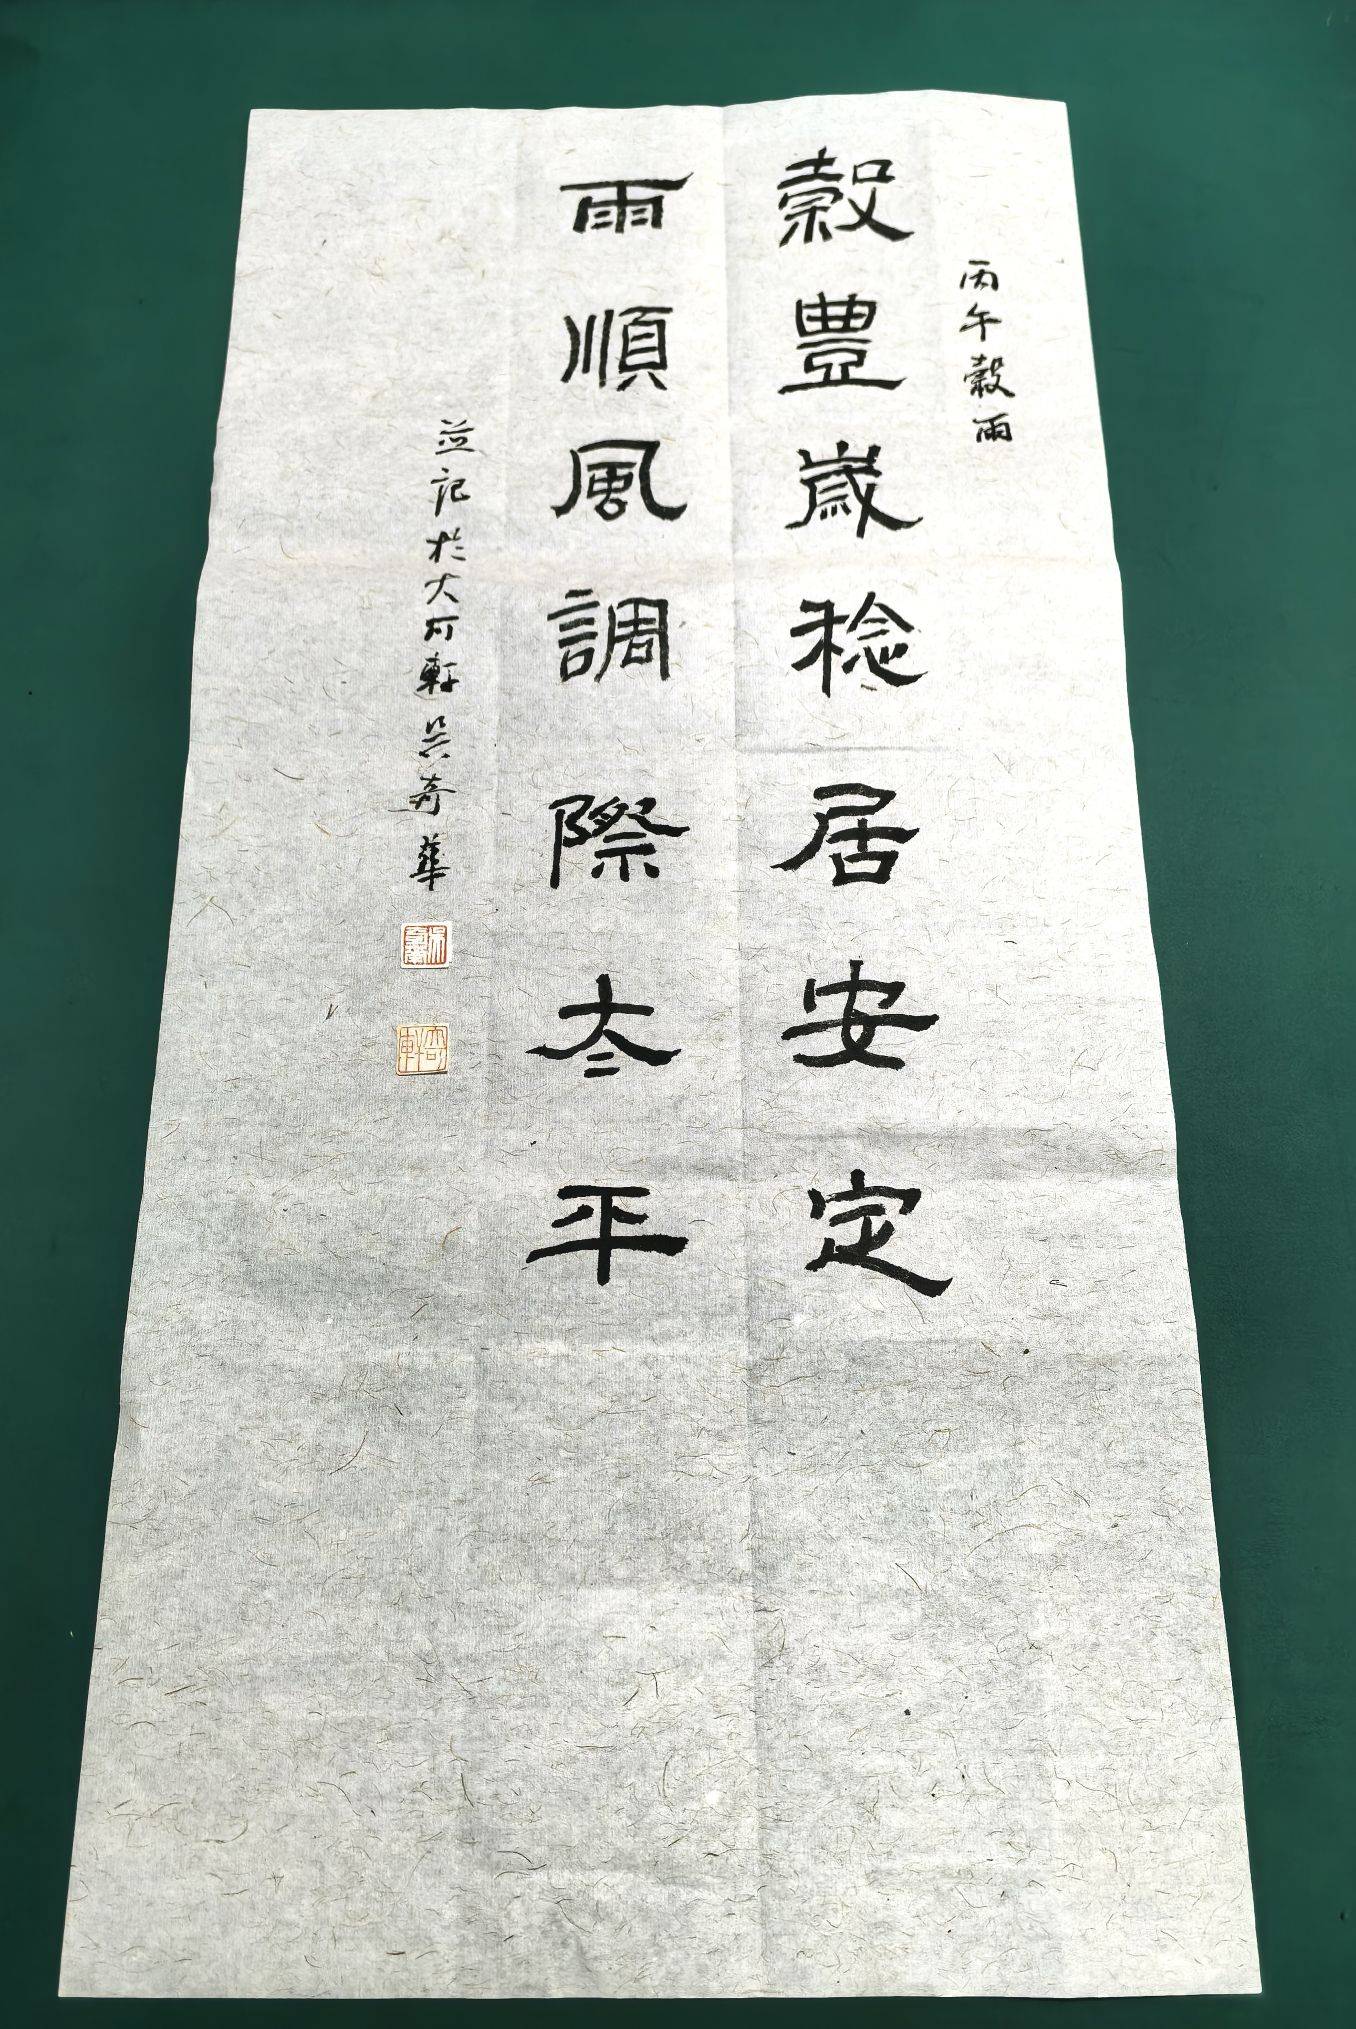 丙午穀雨
穀豊歲稔居安定
雨順風調際夳平
並記於大可軒吳奇華